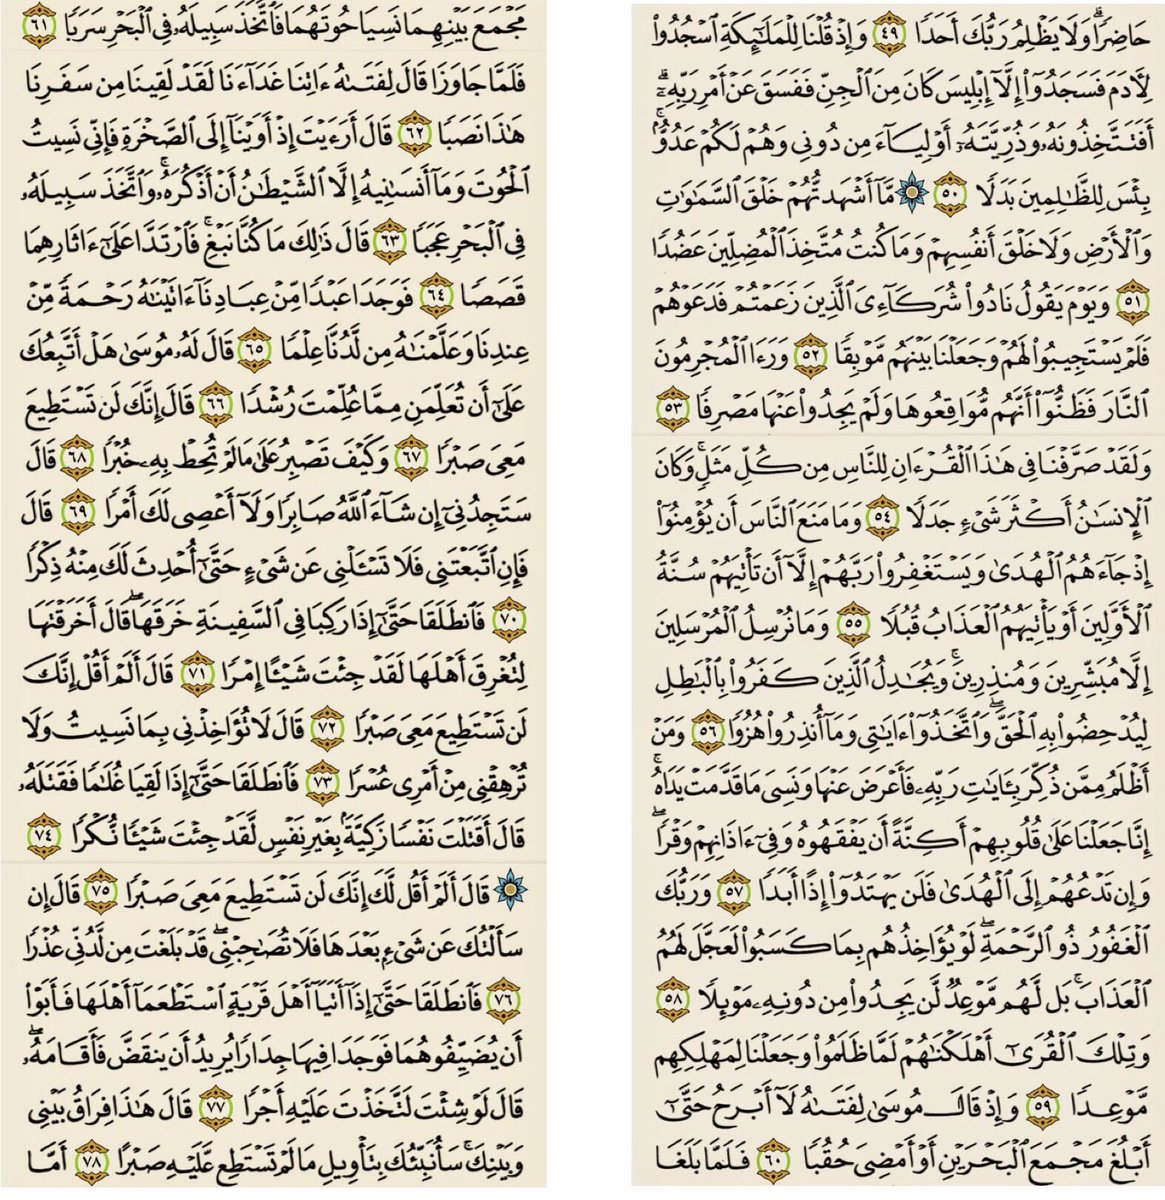 حَاضِرًا ۗ وَلَا يَظْلِمُ رَبُّكَ أَحَدًا ٤٩ وَإِذْ قُلْنَا لِلْمَلَٰٓئِكَةِ ٱسْجُدُوا۟
لِءَادَمَ فَسَجَدُوٓا۟ إِلَّآ إِبْلِيسَ كَانَ مِنَ ٱلْجِنِّ فَفَسَقَ عَنْ أَمْرِ رَبِّهِۦٓ ۗ
أَفَتَتَّخِذُونَهُۥ وَذُرِّيَّتَهُۥٓ أَوْلِيَآءَ مِن دُونِى وَهُمْ لَكُمْ عَدُوٌّۢ ۚ
بِئْسَ لِلظَّٰلِمِينَ بَدَلًا ٥٠ مَّآ أَشْهَدتُّهُمْ خَلْقَ ٱلسَّمَٰوَٰتِ
وَٱلْأَرْضِ وَلَا خَلْقَ أَنفُسِهِمْ وَمَا كُنتُ مُتَّخِذَ ٱلْمُضِلِّينَ عَضُدًا
٥١ وَيَوْمَ يَقُولُ نَادُوا۟ شُرَكَآءِىَ ٱلَّذِينَ زَعَمْتُمْ فَدَعَوْهُمْ
فَلَمْ يَسْتَجِيبُوا۟ لَهُمْ وَجَعَلْنَا بَيْنَهُم مَّوْبِقًا ٥٢ وَرَءَا ٱلْمُجْرِمُونَ
ٱلنَّارَ فَظَنُّوٓا۟ أَنَّهُم مُّوَاقِعُوهَا وَلَمْ يَجِدُوا۟ عَنْهَا مَصْرِفًا ٥٣
وَلَقَدْ صَرَّفْنَا فِى هَٰذَا ٱلْقُرْءَانِ لِلنَّاسِ مِن كُلِّ مَثَلٍ ۚ وَكَانَ
ٱلْإِنسَٰنُ أَكْثَرَ شَىْءٍ جَدَلًا ٥٤ وَمَا مَنَعَ ٱلنَّاسَ أَن يُؤْمِنُوٓا۟
إِذْ جَآءَهُمُ ٱلْهُدَىٰ وَيَسْتَغْفِرُوا۟ رَبَّهُمْ إِلَّآ أَن تَأْتِيَهُمْ سُنَّةُ
ٱلْأَوَّلِينَ أَوْ يَأْتِيَهُمُ ٱلْعَذَابُ قُبُلًا ٥٥ وَمَا نُرْسِلُ ٱلْمُرْسَلِينَ
إِلَّا مُبَشِّرِينَ وَمُنذِرِينَ ۚ وَيُجَٰدِلُ ٱلَّذِينَ كَفَرُوا۟ بِٱلْبَٰطِلِ
لِيُدْحِضُوا۟ بِهِ ٱلْحَقَّ ۖ وَٱتَّخَذُوٓا۟ ءَايَٰتِى وَمَآ أُنذِرُوا۟ هُزُوًا ٥٦ وَمَنْ
أَظْلَمُ مِمَّن ذُكِّرَ بِـَٔايَٰتِ رَبِّهِۦ فَأَعْرَضَ عَنْهَا وَنَسِىَ مَا قَدَّمَتْ يَدَاهُ ۚ
إِنَّا جَعَلْنَا عَلَىٰ قُلُوبِهِمْ أَكِنَّةً أَن يَفْقَهُوهُ وَفِىٓ ءَاذَانِهِمْ وَقْرًا ۖ
وَإِن تَدْعُهُمْ إِلَى ٱلْهُدَىٰ فَلَن يَهْتَدُوٓا۟ إِذًا أَبَدًا ٥٧ وَرَبُّكَ
ٱلْغَفُورُ ذُو ٱلرَّحْمَةِ ۖ لَوْ يُؤَاخِذُهُم بِمَا كَسَبُوا۟ لَعَجَّلَ لَهُمُ
ٱلْعَذَابَ ۚ بَل لَّهُم مَّوْعِدٌ لَّن يَجِدُوا۟ مِن دُونِهِۦ مَوْئِلًا ٥٨
وَتِلْكَ ٱلْقُرَىٰٓ أَهْلَكْنَٰهُمْ لَمَّا ظَلَمُوا۟ وَجَعَلْنَا لِمَهْلِكِهِم
مَّوْعِدًا ٥٩ وَإِذْ قَالَ مُوسَىٰ لِفَتَىٰهُ لَآ أَبْرَحُ حَتَّىٰٓ
أَبْلُغَ مَجْمَعَ ٱلْبَحْرَيْنِ أَوْ أَمْضِىَ حُقُبًا ٦٠ فَلَمَّا بَلَغَا
مَجْمَعَ بَيْنِهِمَا نَسِيَا حُوتَهُمَا فَٱتَّخَذَ سَبِيلَهُۥ فِى ٱلْبَحْرِ سَرَبًا ٦١
فَلَمَّا جَاوَزَا قَالَ لِفَتَىٰهُ ءَاتِنَا غَدَآءَنَا لَقَدْ لَقِينَا مِن سَفَرِنَا
هَٰذَا نَصَبًا ٦٢ قَالَ أَرَءَيْتَ إِذْ أَوَيْنَآ إِلَى ٱلصَّخْرَةِ فَإِنِّى نَسِيتُ
ٱلْحُوتَ وَمَآ أَنسَىٰنِيهُ إِلَّا ٱلشَّيْطَٰنُ أَنْ أَذْكُرَهُۥ ۚ وَٱتَّخَذَ سَبِيلَهُۥ
فِى ٱلْبَحْرِ عَجَبًا ٦٣ قَالَ ذَٰلِكَ مَا كُنَّا نَبْغِ ۚ فَٱرْتَدَّا عَلَىٰٓ ءَاثَارِهِمَا
قَصَصًا ٦٤ فَوَجَدَا عَبْدًا مِّنْ عِبَادِنَآ ءَاتَيْنَٰهُ رَحْمَةً مِّنْ
عِندِنَا وَعَلَّمْنَٰهُ مِن لَّدُنَّا عِلْمًا ٦٥ قَالَ لَهُۥ مُوسَىٰ هَلْ أَتَّبِعُكَ
عَلَىٰٓ أَن تُعَلِّمَنِ مِمَّا عُلِّمْتَ رُشْدًا ٦٦ قَالَ إِنَّكَ لَن تَسْتَطِيعَ
مَعِىَ صَبْرًا ٦٧ وَكَيْفَ تَصْبِرُ عَلَىٰ مَا لَمْ تُحِطْ بِهِۦ خُبْرًا ٦٨ قَالَ
سَتَجِدُنِىٓ إِن شَآءَ ٱللَّهُ صَابِرًا وَلَآ أَعْصِى لَكَ أَمْرًا ٦٩ قَالَ
فَإِنِ ٱتَّبَعْتَنِى فَلَا تَسْـَٔلْنِى عَن شَىْءٍ حَتَّىٰٓ أُحْدِثَ لَكَ مِنْهُ ذِكْرًا
٧٠ فَٱنطَلَقَا حَتَّىٰٓ إِذَا رَكِبَا فِى ٱلسَّفِينَةِ خَرَقَهَا ۖ قَالَ أَخَرَقْتَهَا
لِتُغْرِقَ أَهْلَهَا لَقَدْ جِئْتَ شَيْـًٔا إِمْرًا ٧١ قَالَ أَلَمْ أَقُلْ إِنَّكَ
لَن تَسْتَطِيعَ مَعِىَ صَبْرًا ٧٢ قَالَ لَا تُؤَاخِذْنِى بِمَا نَسِيتُ وَلَا
تُرْهِقْنِى مِنْ أَمْرِى عُسْرًا ٧٣ فَٱنطَلَقَا حَتَّىٰٓ إِذَا لَقِيَا غُلَٰمًا فَقَتَلَهُۥ
قَالَ أَقَتَلْتَ نَفْسًا زَكِيَّةًۢ بِغَيْرِ نَفْسٍ لَّقَدْ جِئْتَ شَيْـًٔا نُّكْرًا ٧٤
قَالَ أَلَمْ أَقُل لَّكَ إِنَّكَ لَن تَسْتَطِيعَ مَعِىَ صَبْرًا ٧٥ قَالَ إِن
سَأَلْتُكَ عَن شَىْءٍۭ بَعْدَهَا فَلَا تُصَٰحِبْنِى ۖ قَدْ بَلَغْتَ مِن لَّدُنِّى عُذْرًا
٧٦ فَٱنطَلَقَا حَتَّىٰٓ إِذَآ أَتَيَآ أَهْلَ قَرْيَةٍ ٱسْتَطْعَمَآ أَهْلَهَا فَأَبَوْا۟
أَن يُضَيِّفُوهُمَا فَوَجَدَا فِيهَا جِدَارًا يُرِيدُ أَن يَنقَضَّ فَأَقَامَهُۥ ۖ
قَالَ لَوْ شِئْتَ لَتَّخَذْتَ عَلَيْهِ أَجْرًا ٧٧ قَالَ هَٰذَا فِرَاقُ بَيْنِى
وَبَيْنِكَ ۚ سَأُنَبِّئُكَ بِتَأْوِيلِ مَا لَمْ تَسْتَطِع عَّلَيْهِ صَبْرًا ٧٨ أَمَّا